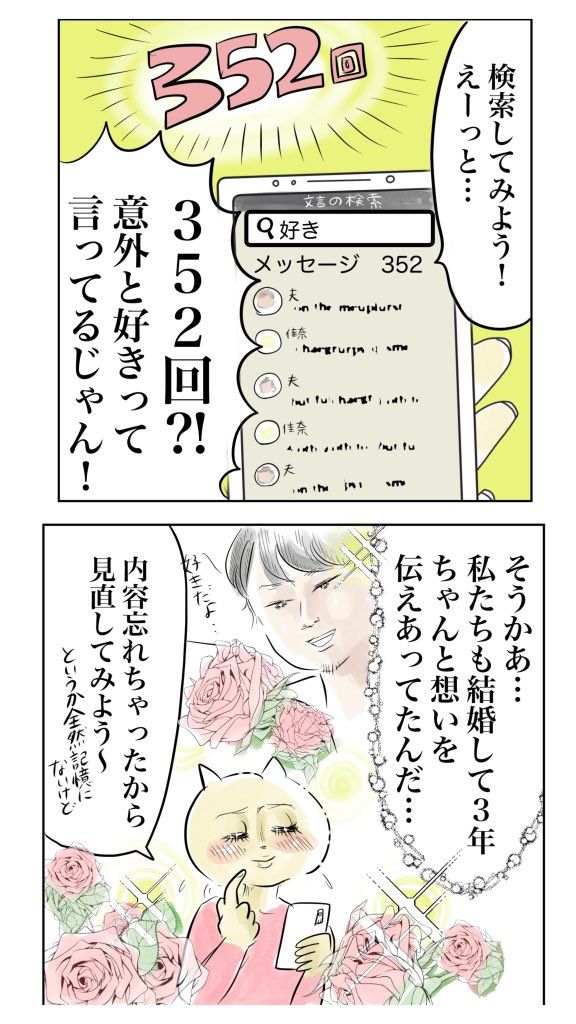 検索してみよう！
えーっと…
352回
文言の検索
好き
メッセージ　352
夫
佳奈
夫
佳奈
夫
３５２回?!
意外と好きって
言ってるじゃん！
そうかぁ…
私たちも結婚して３年
ちゃんと想いを
伝えあってたんだ…
好きだよ…
内容忘れちゃったから
見直してみよう〜
というか全然記憶に
ないけど